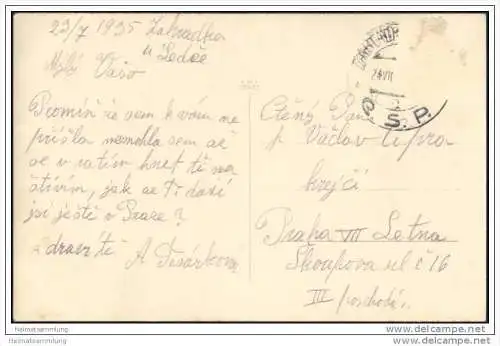 23/7 1935 Zahrádka
u Ledče
Milý Vašo
Promiň že sem k vám ne
přišla nemohla sem ale
se vrátím hnet tě na
štívím, jak se Ti daří
jsi ještě v Praze?
zdraví tě
A Tesárková
Č.S.P.
Ctěný Pan
p. Václav Cipra
krejčí
Praha VII Letna
Skoupova ul č 16
III poschodí.
Heimatsammlung
Heimatsammlung
Heimatsammlung
Heimatsammlung